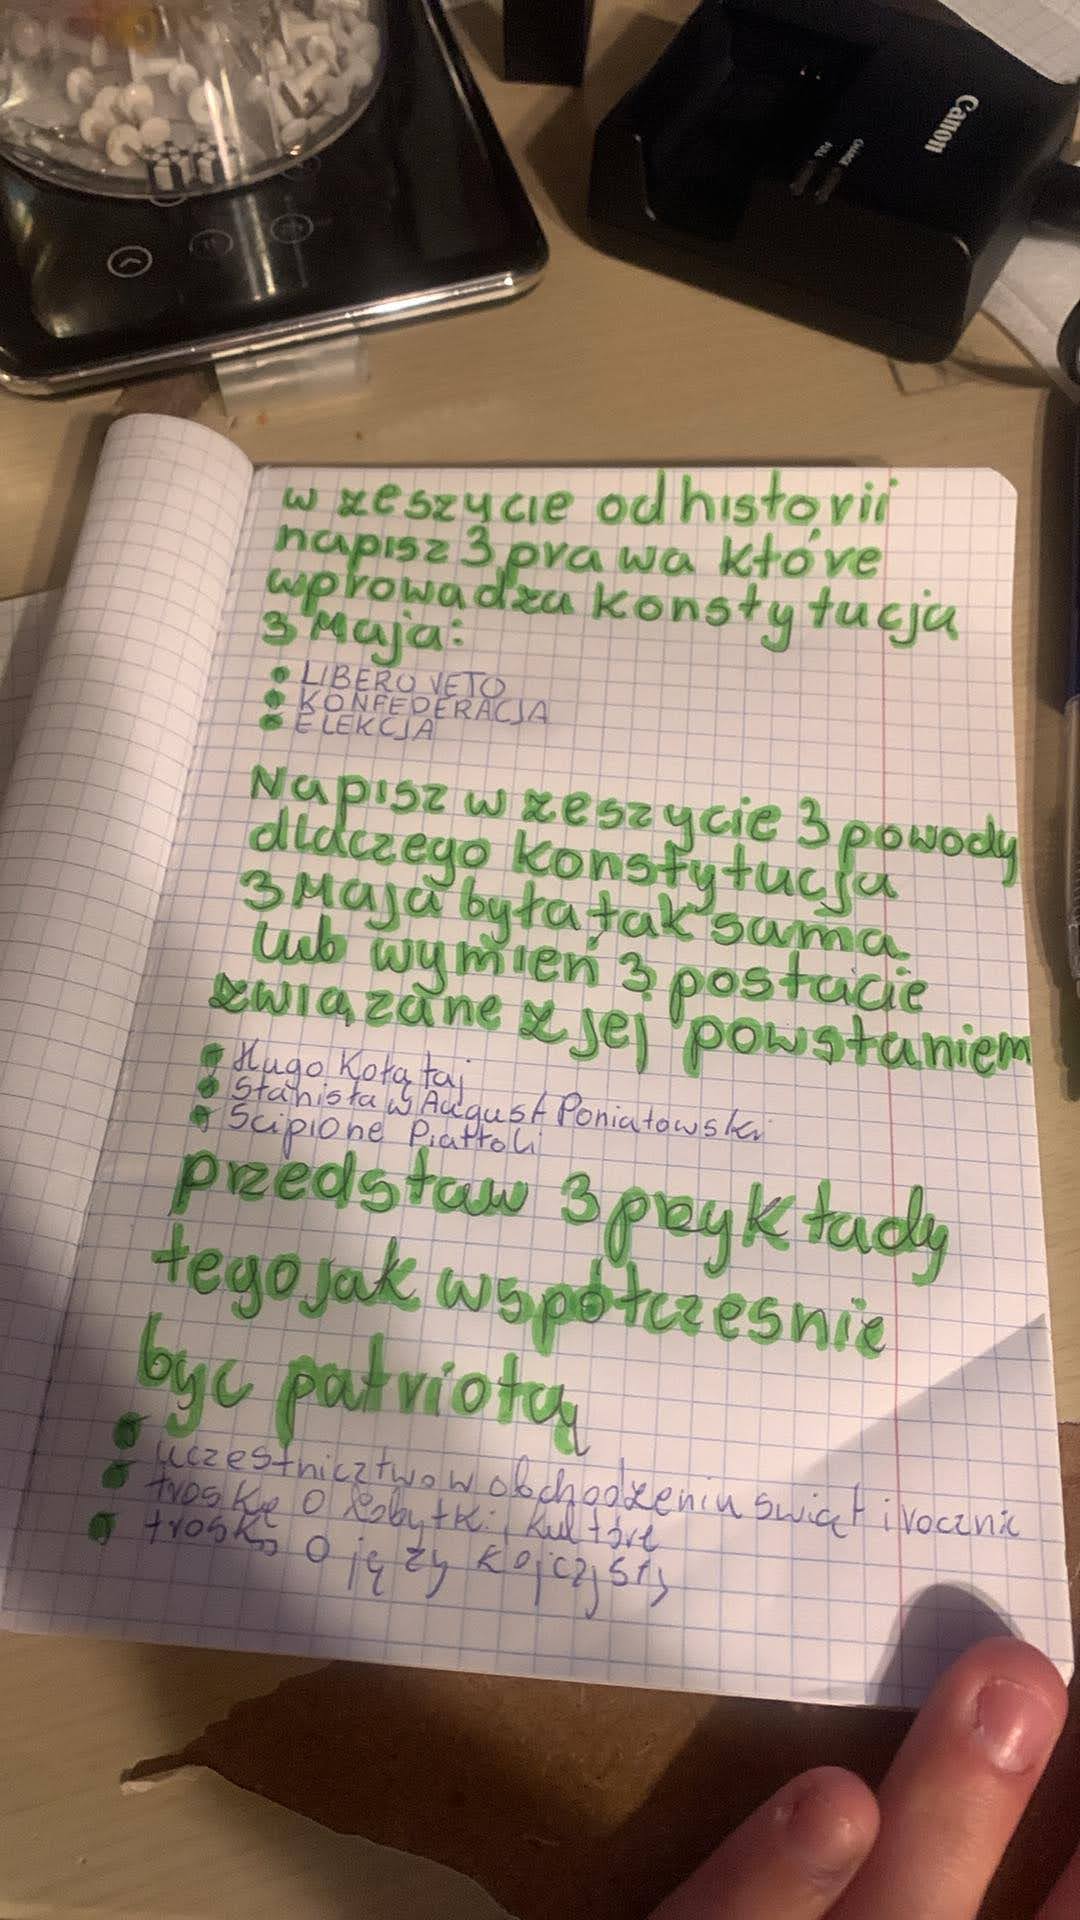 Canon
CHARGE
FULL
w zeszycie od historii
napisz 3 prawa które
wprowadza konstytucja
3 Maja:
• LIBERU VETO
• KONFEDERACJA
• ELEKCJA
Napisz w zeszycie 3 powody
dlaczego konstytucja
3 Maja była tak sama
lub wymień 3 postacie
związane z jej powstaniem
• Hugo Kołątaj
• Stanisław August Poniatowski
• Scipione Piattoli
przedstaw 3 przykłady
tego jak współczesnie
być patriotą
• uczestnictwo w obchodzeniu świąt i rocznic
• troskę o zabytki, kulturę
• troską o języ kojczysty